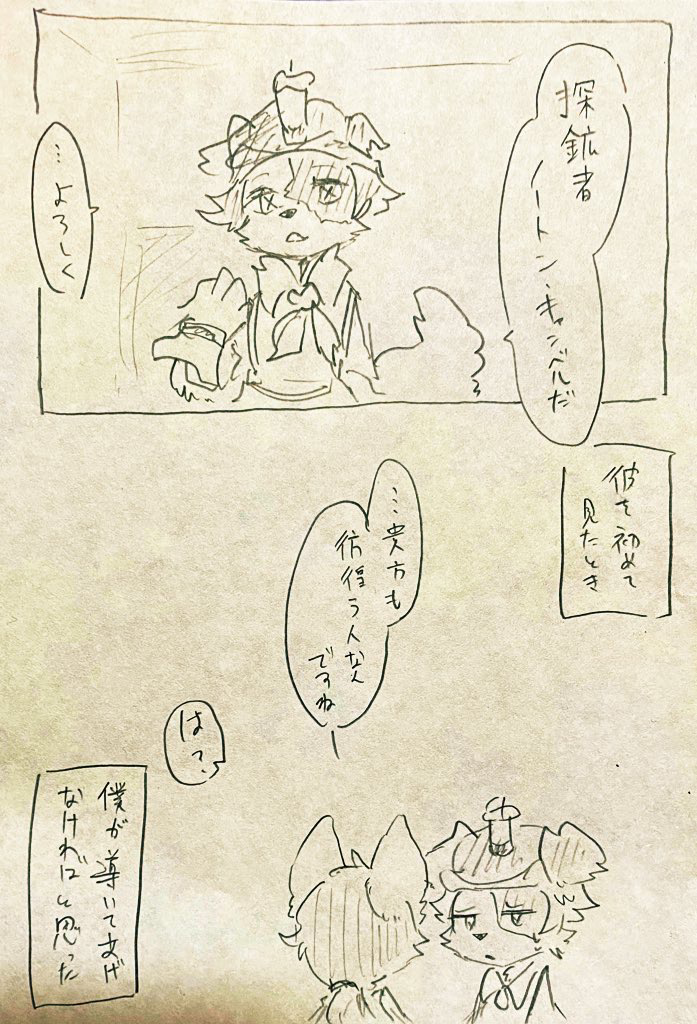 探鉱者
ノートン・キャンベルだ
…よろしく
彼を初めて
見たとき
…貴方も
彷徨う人なん
ですね
は?
僕が導いてあげ
なければと思った